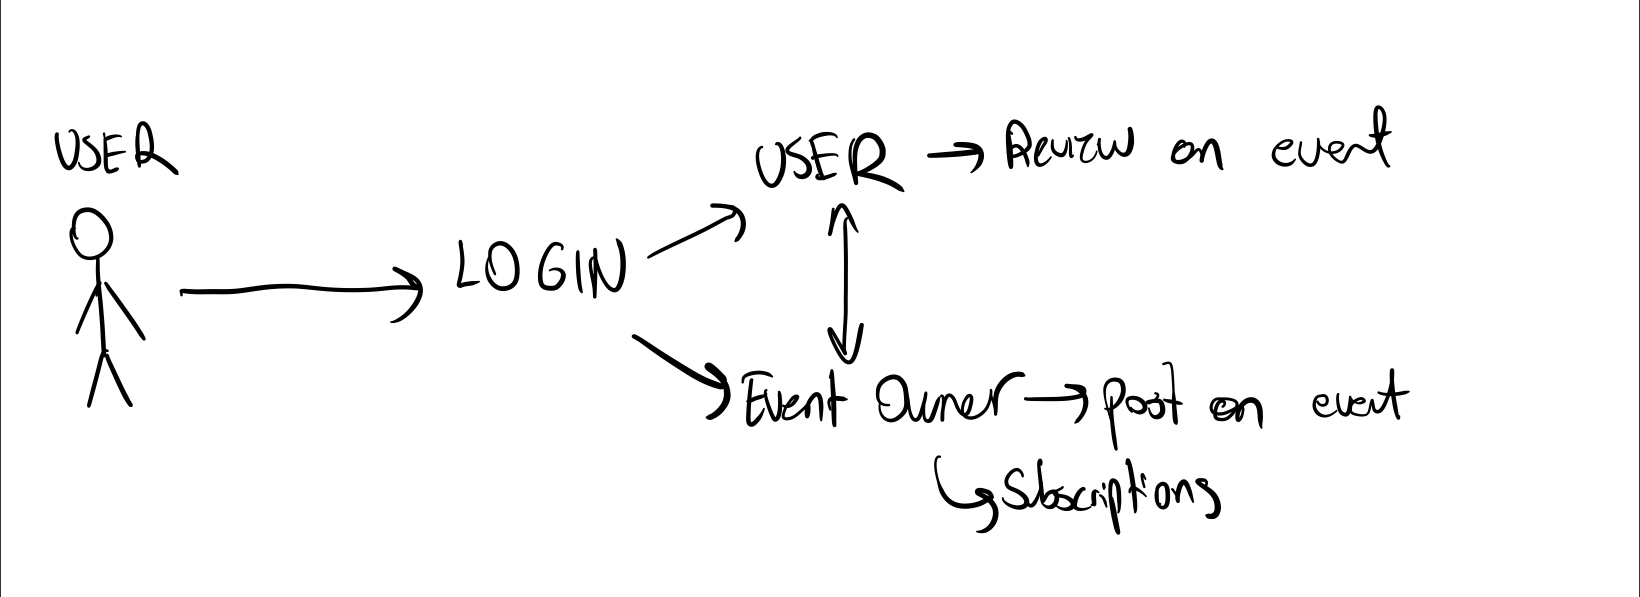 USER
USER → Review on event
LOGIN
Event Owner → post on event
Subscriptions